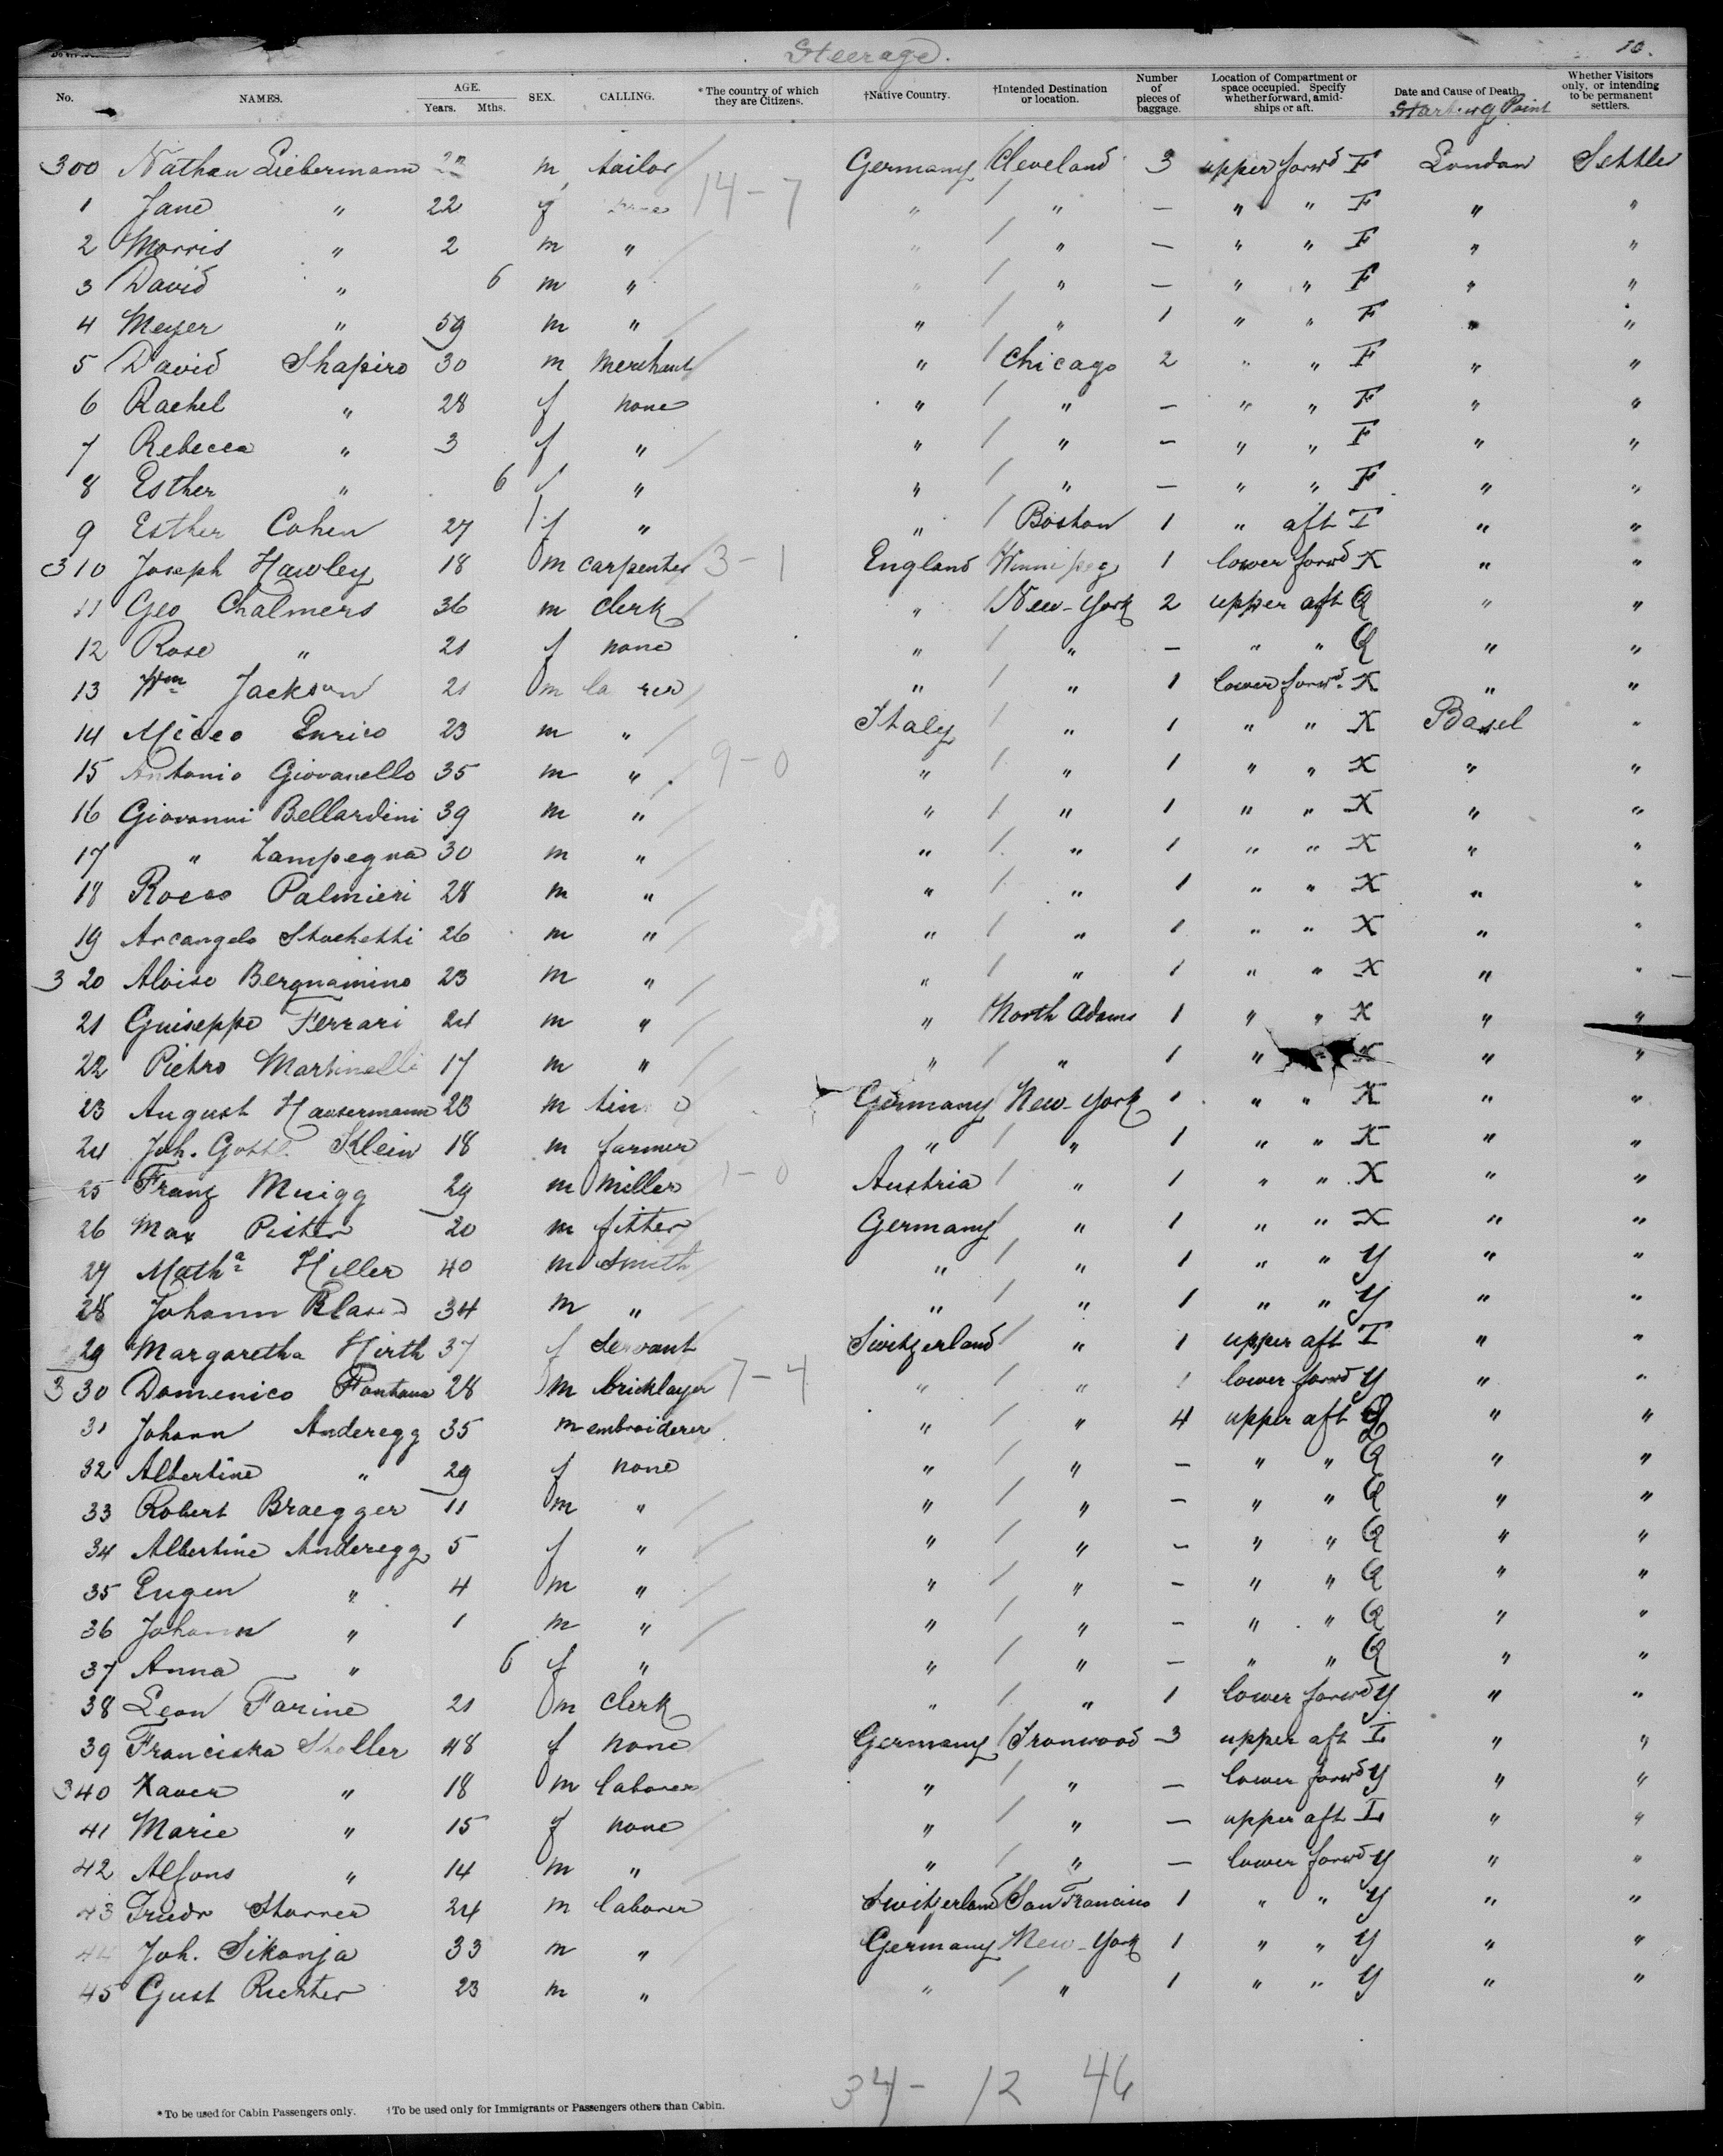 Steerage. 10.
No. NAMES. AGE. Years. Mths. SEX. CALLING. *The country of which they are Citizens. †Native Country. †Intended Destination or location. Number of pieces of baggage. Location of Compartment or space occupied. Specify whether forward, amidships or aft. Date and Cause of Death. Starting Point Whether Visitors only, or intending to be permanent settlers.
300 Nathan Liebermann m tailor Germany Cleveland 3 upper forwd F London Settler
14-7
1 Jane " 22 f " " — " " F " "
2 Morris " 2 m " " " — " " F " "
3 David " 6 m " " " — " " F " "
4 Meyer " 59 m " " " 1 " " F " "
5 David Shapiro 30 m merchant " Chicago 2 " " F " "
6 Rachel " 28 f none " " — " " F " "
7 Rebecca " 3 f " " " — " " F " "
8 Esther " 6 f " " " — " " F " "
9 Esther Cohen 27 f " " Boston 1 " aft I " "
310 Joseph Hawley 18 m carpenter 3-1 England Winnipeg 1 lower forwd X " "
11 Geo Chalmers 36 m clerk " New-York 2 upper aft Q " "
12 Rose " 21 f none " " — " " Q " "
13 Wm Jackson 21 m " " 1 lower forwd. X " "
14 Mideo Enrico 23 m " Italy " 1 " " X Basel "
9-0
15 Antonio Giovanello 35 m " " " 1 " " X " "
16 Giovanni Bellardini 39 m " " " 1 " " X " "
17 " Lampegna 30 m " " " 1 " " X " "
18 Rocco Palmieri 28 m " " " 1 " " X " "
19 Arcangelo Stochetti 26 m " " " 1 " " X " "
320 Aloiso Bergnamino 23 m " " " 1 " " X " "
21 Guiseppe Ferrari 24 m " " North Adams 1 " " X " "
22 Pietro Martinelli 17 m " " " 1 " " X " "
23 August Hausermann 23 m Germany New-York 1 " " X " "
24 Joh. Gottl. Klein 18 m farmer " " 1 " " X " "
25 Franz Muigg 29 m miller 1-0 Austria " 1 " " X " "
26 Max Pister 20 m fitter Germany " 1 " " X " "
27 Matha Hiller 40 m smith " " 1 " " Y " "
28 Johann 34 m " " " 1 " " Y " "
29 Margaretha Hirth 37 f servant Switzerland " 1 upper aft I " "
330 Domenico Fontana 28 m bricklayer 7-4 " " 1 lower forwd Y " "
31 Johann Anderegg 35 m embroiderer " " 4 upper aft Q " "
32 Albertine " 29 f none " " — " " Q " "
33 Robert Braegger 11 m " " " — " " Q " "
34 Albertine Anderegg 5 f " " " — " " Q " "
35 Eugen " 4 m " " " — " " Q " "
36 Johann " 1 m " " " — " " Q " "
37 Anna " 6 f " " " — " " Q " "
38 Leon Farine 21 m clerk " " 1 lower forwd Y " "
39 Franciska 48 f none Germany Ironwood 3 upper aft I " "
340 Xaver " 18 m laborer " " — lower forwd Y " "
41 Marie " 15 f none " " — upper aft I " "
42 Alfons " 14 m " " " — lower forwd Y " "
43 Friedr Storrer 24 m laborer Switzerland San Francisco 1 " " Y " "
44 Joh. Sikonja 33 m " Germany New-York 1 " " Y " "
45 Gust Richter 23 m " " " 1 " " Y " "
34- 12 46
*To be used for Cabin Passengers only. †To be used only for Immigrants or Passengers others than Cabin.